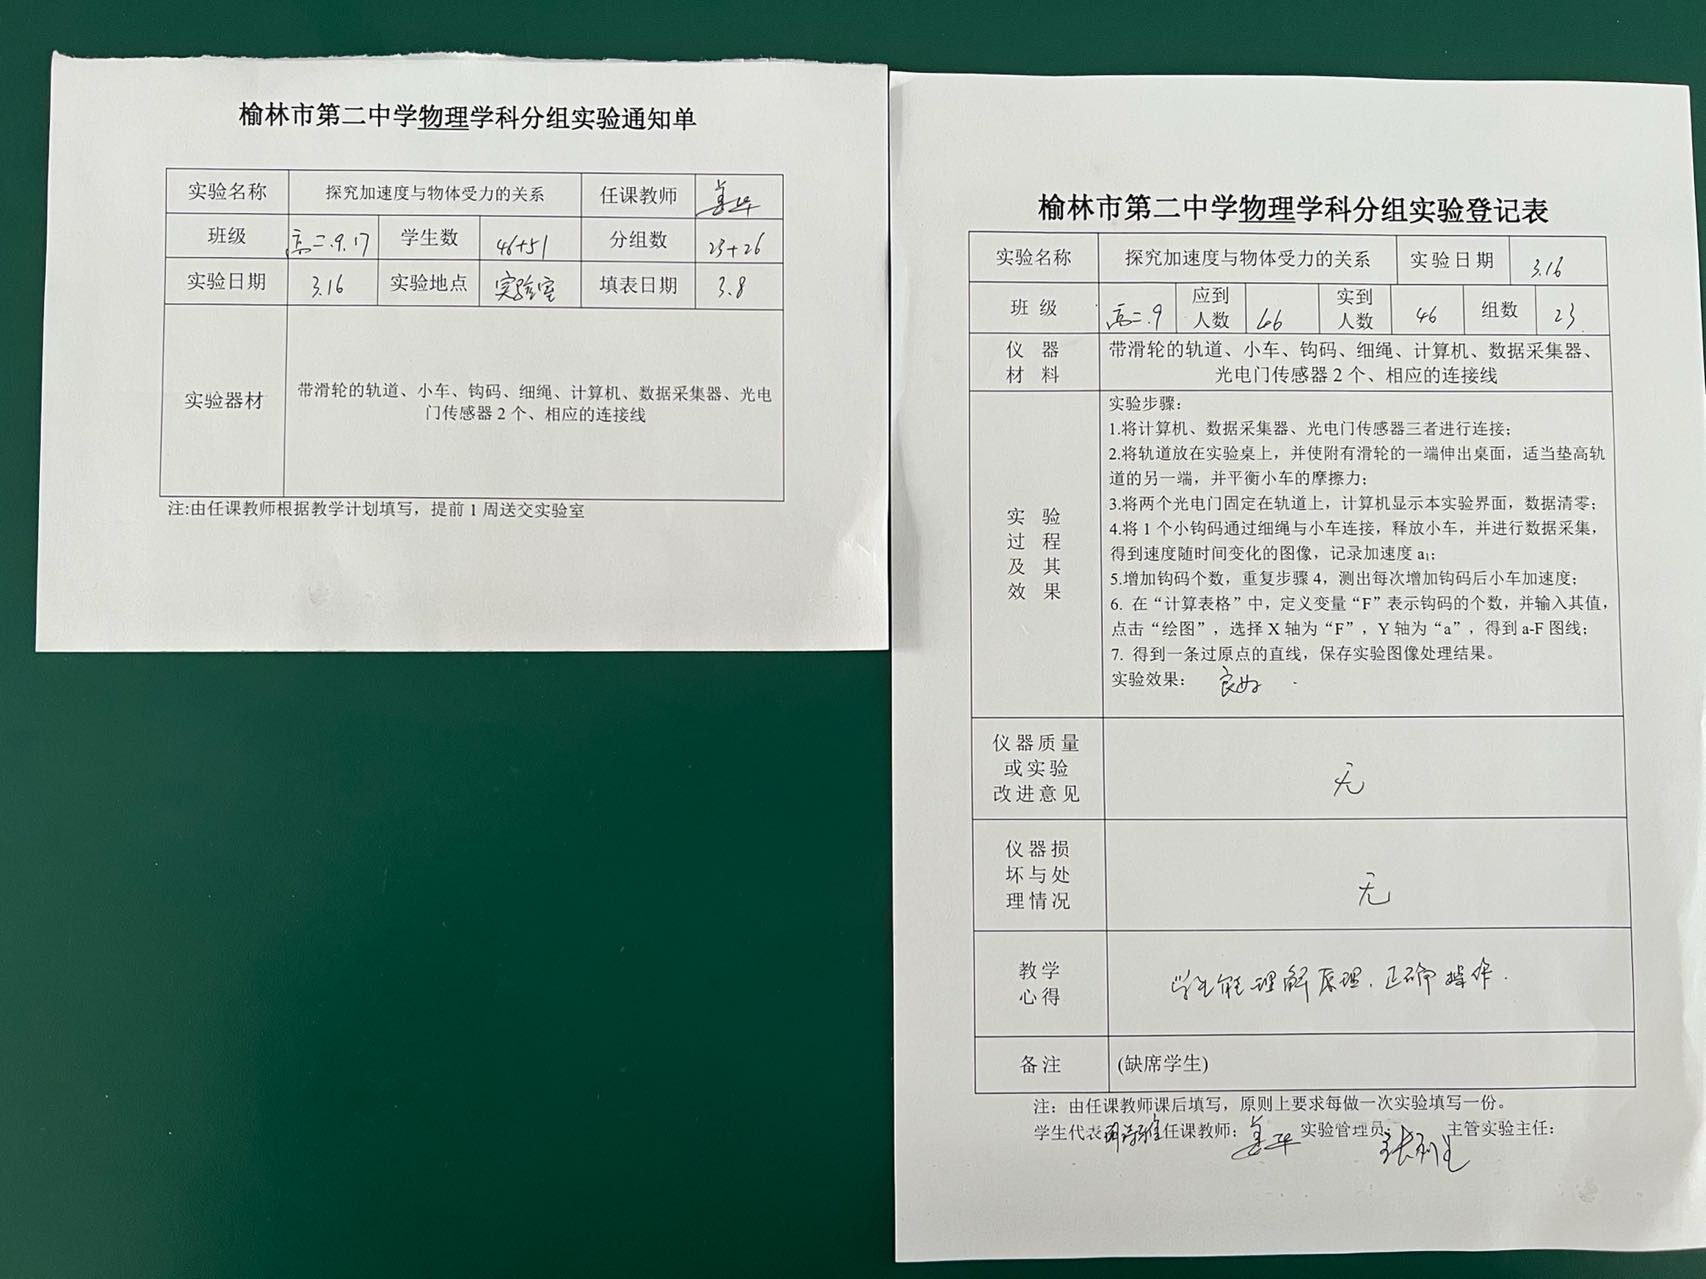 榆林市第二中学物理学科分组实验通知单
实验名称 探究加速度与物体受力的关系 任课教师
班级 高二.9.17 学生数 46+51 分组数 23+26
实验日期 3.16 实验地点 实验室 填表日期 3.8
实验器材 带滑轮的轨道、小车、钩码、细绳、计算机、数据采集器、光电
门传感器 2 个、相应的连接线
注:由任课教师根据教学计划填写，提前 1 周送交实验室
榆林市第二中学物理学科分组实验登记表
实验名称 探究加速度与物体受力的关系 实验日期 3.16
班 级 高二.9 应到
人数 46 实到
人数 46 组数 23
仪 器
材 料
带滑轮的轨道、小车、钩码、细绳、计算机、数据采集器、
光电门传感器 2 个、相应的连接线
实 验
过 程
及 其
效 果
实验步骤：
1.将计算机、数据采集器、光电门传感器三者进行连接；
2.将轨道放在实验桌上，并使附有滑轮的一端伸出桌面，适当垫高轨
道的另一端，并平衡小车的摩擦力；
3.将两个光电门固定在轨道上，计算机显示本实验界面，数据清零；
4.将 1 个小钩码通过细绳与小车连接，释放小车，并进行数据采集，
得到速度随时间变化的图像，记录加速度 a₁；
5.增加钩码个数，重复步骤 4，测出每次增加钩码后小车加速度；
6. 在“计算表格”中，定义变量“F”表示钩码的个数，并输入其值，
点击“绘图”，选择 X 轴为“F”，Y 轴为“a”，得到 a-F 图线；
7. 得到一条过原点的直线，保存实验图像处理结果。
实验效果： 良好.
仪器质量
或实验
改进意见
无
仪器损
坏与处
理情况
无
教学
心得
学生能理解原理.正确操作.
备注 (缺席学生)
注：由任课教师课后填写，原则上要求每做一次实验填写一份。
学生代表 任课教师： 实验管理员： 主管实验主任：